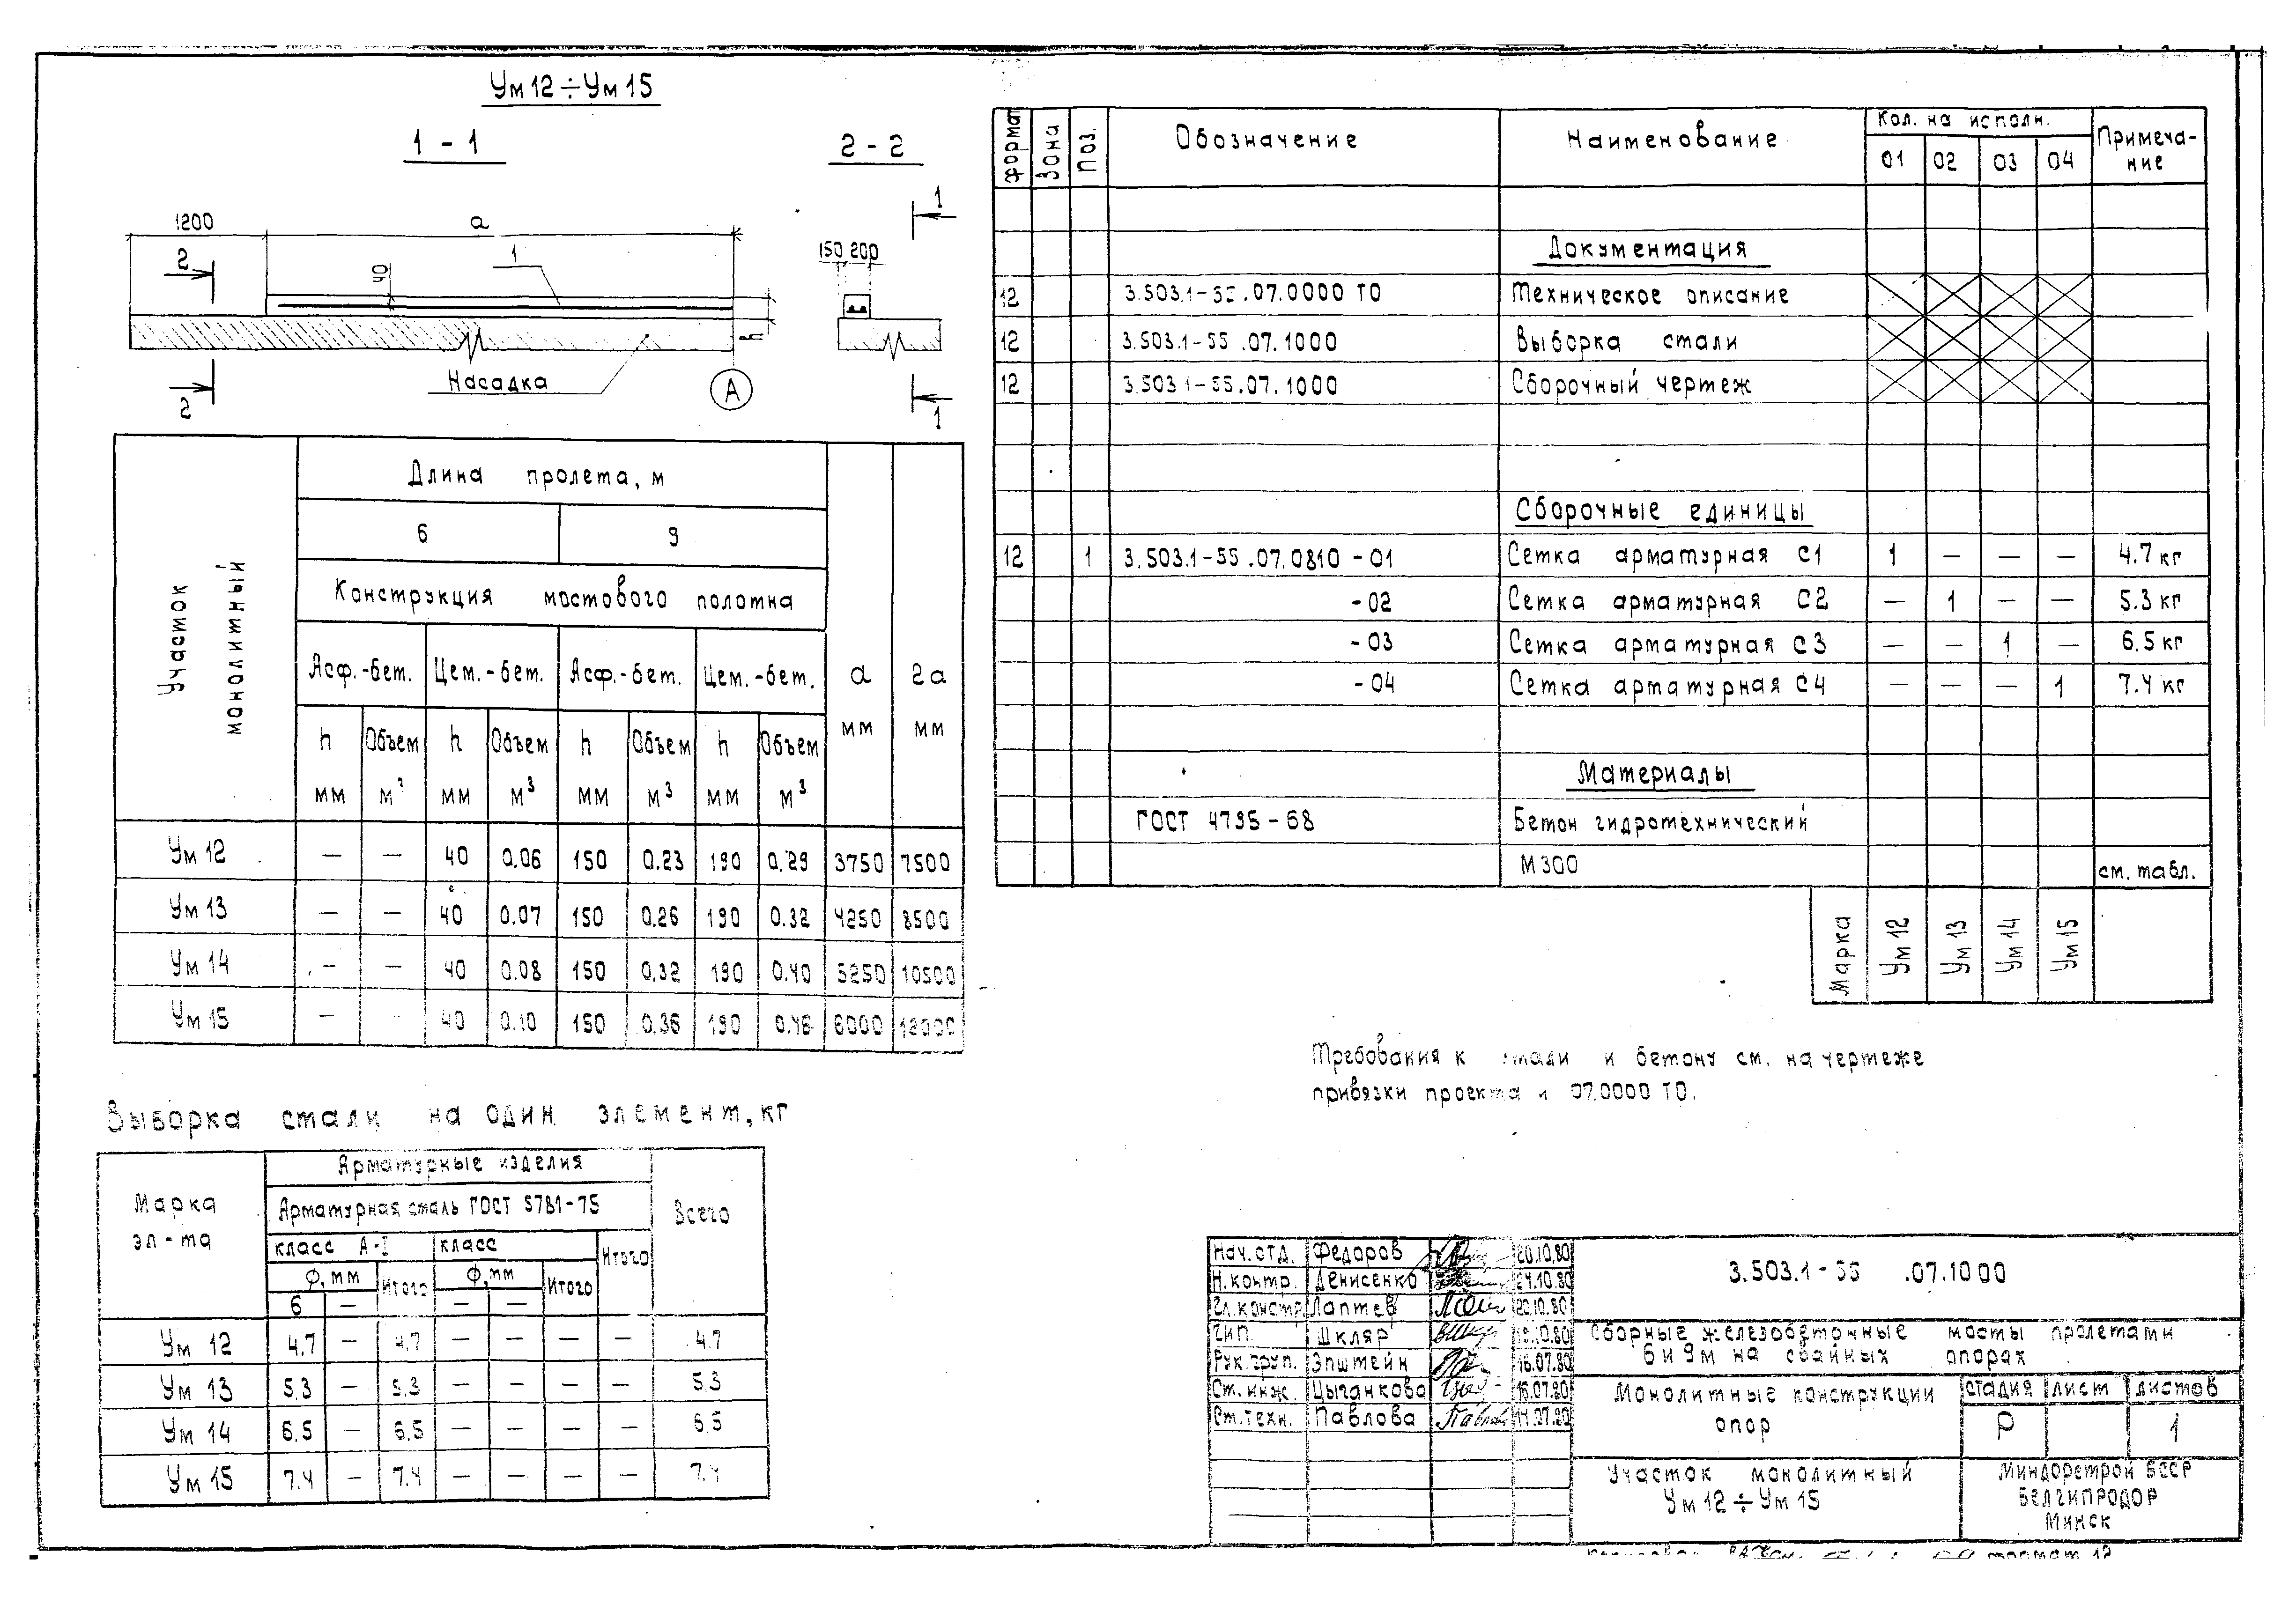 Ум12÷Ум15
1 - 1
2 - 2
1200
а
2
40
1
h
Насадка
2
А
1
150 200
1
Участок монолитный
Длина пролета, м
6
9
Конструкция мостового полотна
Асф.-бет.
Цем.-бет.
Асф.-бет.
Цем.-бет.
а мм
2а мм
h мм
Объем м³
h мм
Объем м³
h мм
Объем м³
h мм
Объем м³
Ум 12 — — 40 0.06 150 0.23 190 0.29 3750 7500
Ум 13 — — 40 0.07 150 0.26 190 0.32 4250 8500
Ум 14 — — 40 0.08 150 0.32 190 0.40 5250 10500
Ум 15 — - 40 0.10 150 0.36 190 0.46 6000 12000
Выборка стали на один элемент, кг
Марка эл-та
Арматурные изделия
Всего
Арматурная сталь ГОСТ 5781-75
класс А-I
класс
Итого
Ф, мм
Итого
Ф, мм
Итого
6 — — —
Ум 12 4.7 — 4.7 — — — — 4.7
Ум 13 5.3 — 5.3 — — — — 5.3
Ум 14 6.5 — 6.5 — — — — 6.5
Ум 15 7.4 — 7.4 — — — — 7.4
формат
Зона
Поз.
Обозначение
Наименование
Кол. на исполн.
01 02 03 04
Примеча-
ние
Документация
12 3.503.1-55.07.0000 ТО Техническое описание
12 3.503.1-55.07.1000 Выборка стали
12 3.503.1-55.07.1000 Сборочный чертеж
Сборочные единицы
12 1 3.503.1-55.07.0810 -01 Сетка арматурная С1 1 — — — 4.7 кг
-02 Сетка арматурная С2 — 1 — — 5.3 кг
-03 Сетка арматурная С3 — — 1 — 6.5 кг
-04 Сетка арматурная С4 — — — 1 7.4 кг
Материалы
ГОСТ 4795-68 Бетон гидротехнический
М300 см. табл.
Марка Ум 12 Ум 13 Ум 14 Ум 15
Требования к стали и бетону см. на чертеже
привязки проекта и 07.0000 ТО.
Нач. отд. Федоров 20.10.80
Н. контр. Денисенко 24.10.80
Гл. констр Лаптев 20.10.80
ГИП. Шкляр .10.80
Рук. груп. Эпштейн 16.07.80
Ст. инж. Цыганкова 16.07.80
Ст. техн. Павлова 14.07.80
3.503.1-55 .07.1000
Сборные железобетонные мосты пролетами
6 и 9м на свайных опорах
Монолитные конструкции
опор
стадия лист листов
Р 1
Участок монолитный
Ум12÷Ум15
Миндорстрой БССР
БЕЛГИПРОДОР
Минск
формат 12